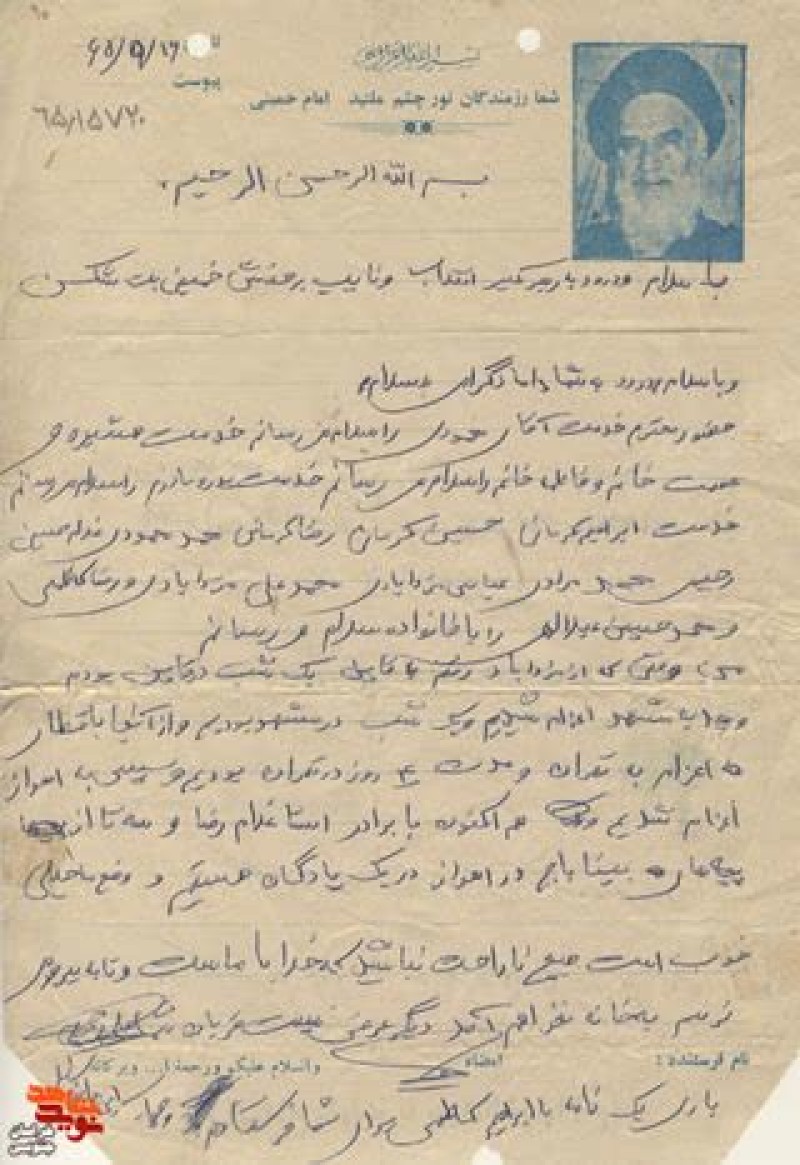 بسم الله الرحمن الرحیم
۶۵/۵/۱۶
پیوست
شما رزمندگان نور چشم ملتید امام خمینی
۶۵/۱۵۷۲۰
بسم الله الرحمن الرحیم
با سلام و درود به رهبر کبیر انقلاب و نایب بر حقش خمینی بت شکن
و با سلام و درود به شما
حضور محترم خدمت آقای محمودی را سلام می رسانم خدمت همشیره
خانم و خانم را سلام می رسانم خدمت را سلام می رسانم
خدمت ابراهیم کرمانی حسین کرمانی رضا کرمانی محمد محمودی غلامحسین
رحیمی محمد مرادی عباس مزدابادی محمد علی مزدابادی و رضا کاظمی
و محمد حسین را با خانواده سلام می رسانم
من وقتی که از مزداباد رفتم یک شب در قاین بودم
به مشهد اعزام شدیم و یک شب در مشهد بودیم و از آنجا با قطار
اعزام به تهران و مدت روز در تهران بودیم و سپس به اهواز
اعزام شدیم هم اکنون با برادر استا غلام رضا و سه تا از
بچه های در اهواز در یک پادگان هستیم و وضع ما خیلی
خوب است هیچ ناراحت نباشید که خدا با ماست و تا به پیروزی
نرسیم به خانه نخواهیم آمد دیگر عرضی نیست قربان شما
نام فرستنده : امضاء والسلام علیکم و رحمة ا... و برکاته
باری یک نامه با ابراهیم کاظمی برای شما فرستادم
نوید